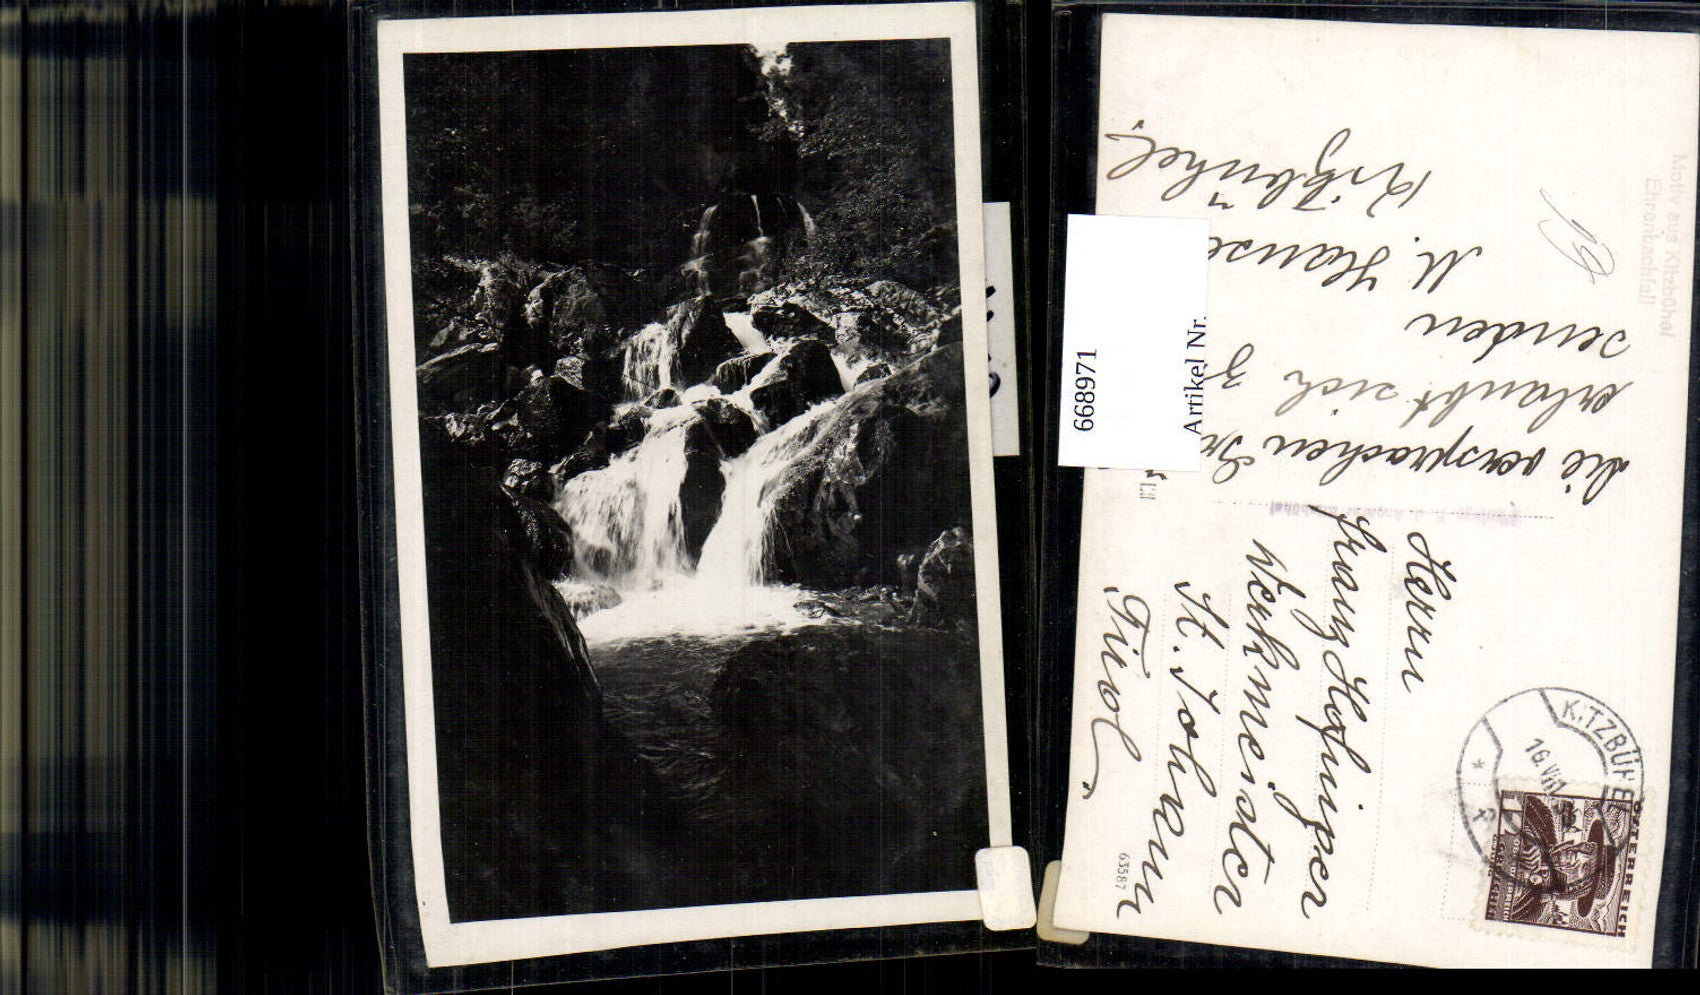 Motiv aus Kitzbühel
Ehrenbachfall
die versprachen
erlaubt sich
senden
M.
Kitzbühel,
668971
Artikel Nr.
KITZBÜHEL
16.VIII
ÖSTERREICH
Herrn
Franz Hofinger
Werkmeister
St. Johann
Tirol
63587